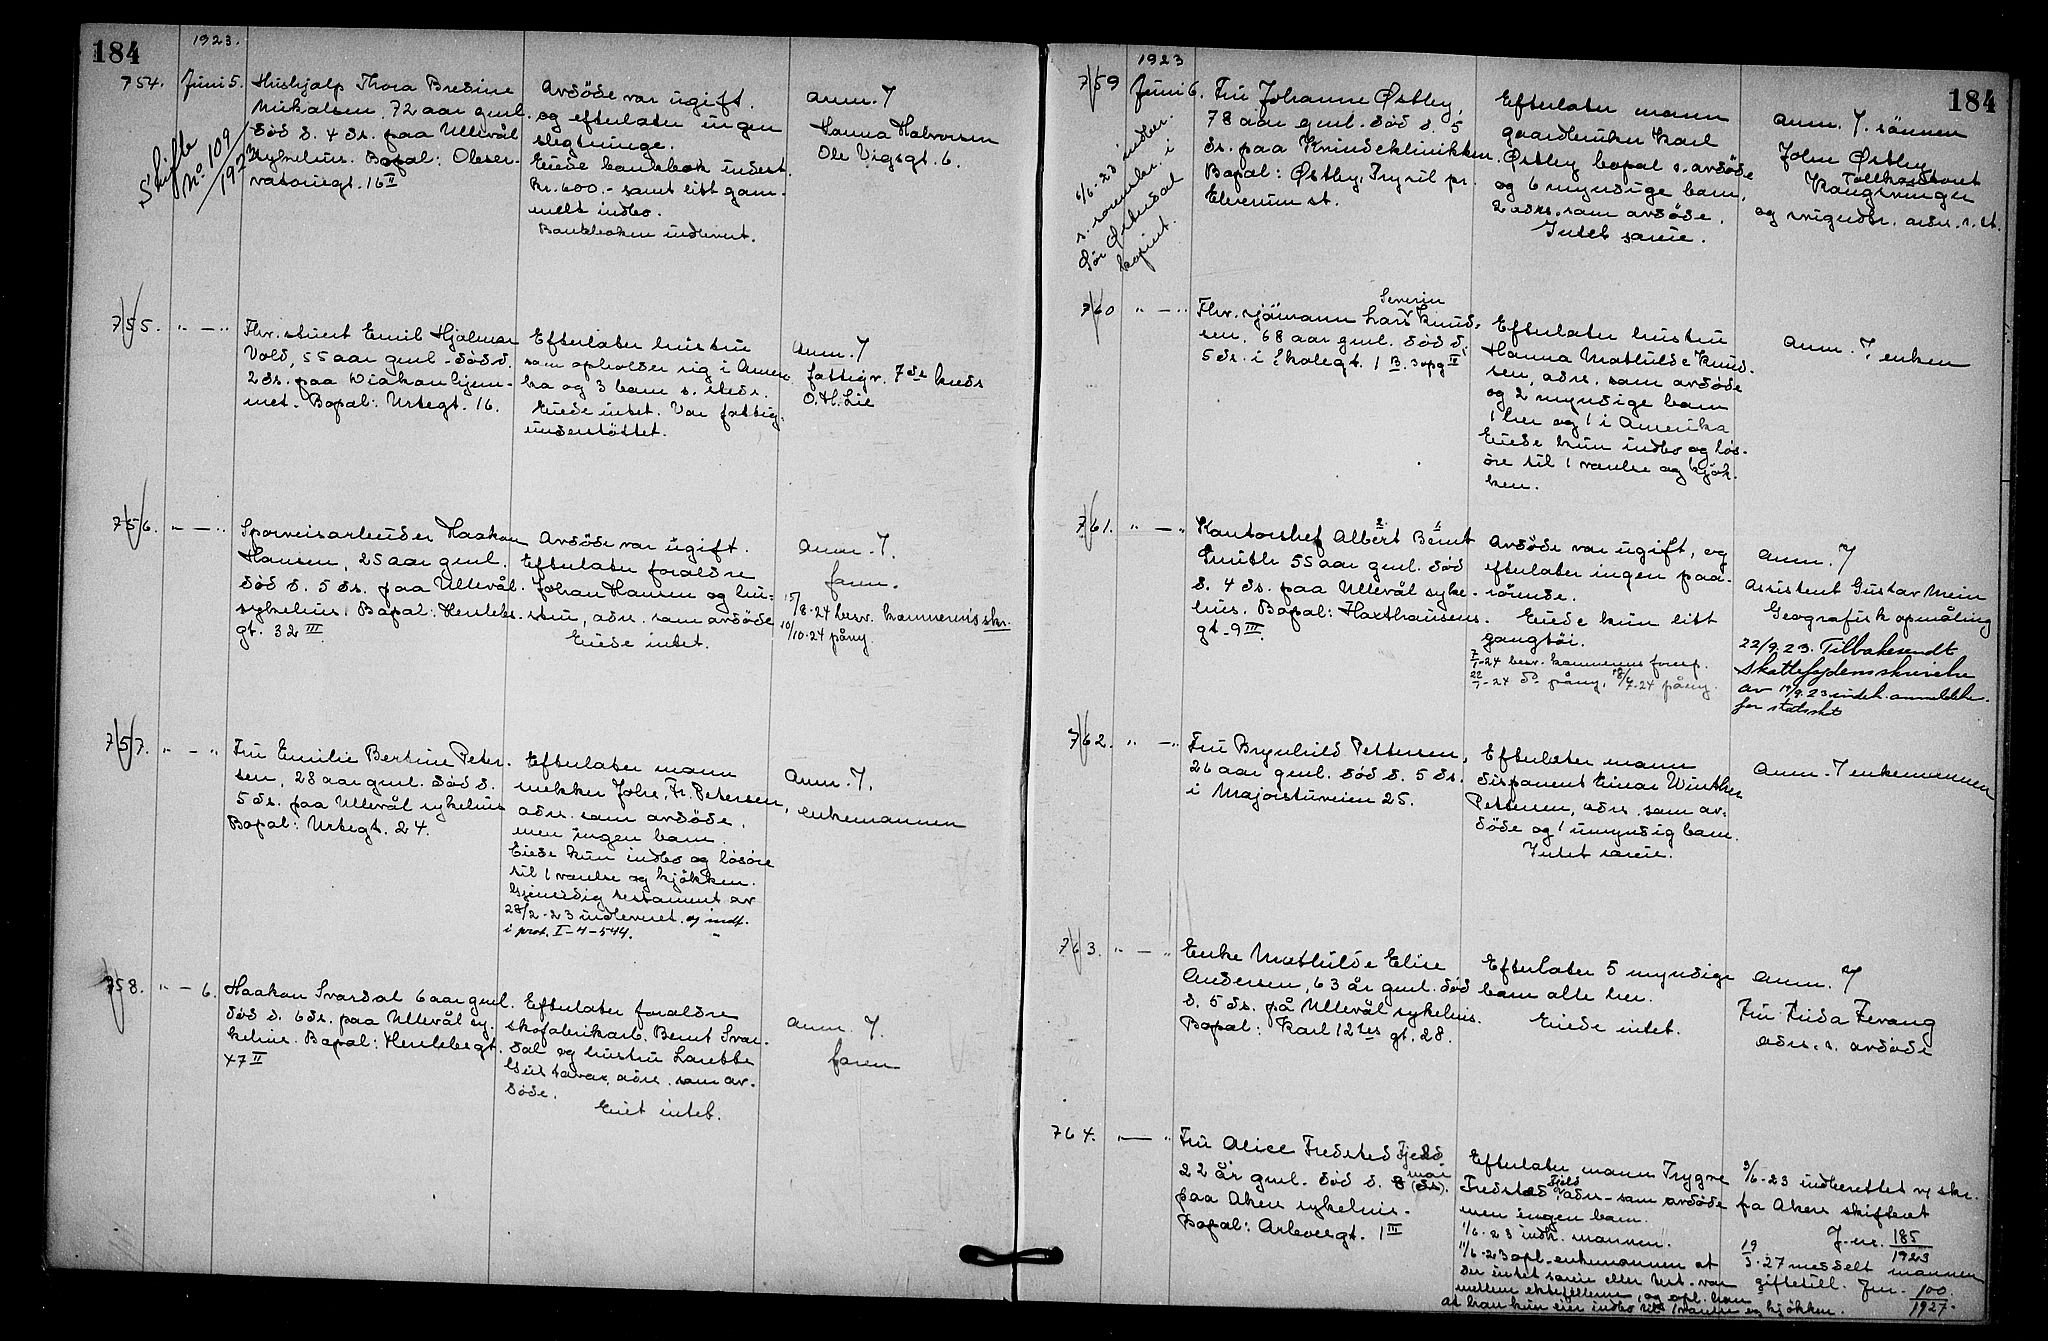 184
1923.
754.
Juni 5.
Skifte
No. 109
1923
Hushjælp Thora Bredine
Mikalsen, 72 aar gml.
död d. 4 ds. paa Ullevål
sykehus. Bopæl: Obser-
vatoriegt. 16 II
Avdöde var ugift.
og efterlater ingen
slegtninge.
Eiede bankbok indest.
Kr. 600.- samt litt gam-
melt indbo.
Bankboken indlevert.
Anm. 7
Hanna Halvorsen
Ole Vigsgt. 6.
755. " — "
Fhv. stuert Emil Hjalmar
Vold, 55 aar gml. död d.
2 ds. paa Diakonhjem-
met. Bopæl: Urtegt. 16.
Efterlater hustru
som opholder sig i Ameri-
ka og 3 barn s. steds.
Eiede intet. Var fattig-
understöttet.
Anm. 7
fattigv. 7de kreds
O. H. Lie
756. " — "
Sporveisarbeider Haakon
Hansen, 25 aar gml.
död d. 5 ds. paa Ullevål
sykehus. Bopæl: Herslebs-
gt. 32 III
Avdöde var ugift.
Efterlater foreldre
Johan Hansen og hu-
stru, adr. som avdöde
Eiede intet.
Anm. 7.
faren.
15/8-24 besv. kæmnerens skr.
10/10-24 påny.
757. " — "
Fru Emilie Bertine Peter-
sen, 28 aar gml. död d.
5 ds. paa Ullevål sykehus
Bopæl: Urtegt. 24.
Efterlater mann
snekker Johs. Fr. Petersen,
adr. som avdöde,
men ingen barn.
Eiede kun indbo og lösöre
til 1 værelse og kjökken.
Gjensidig testament av
28/2-23 indleveret og indf.
i prot. I-4-544.
Anm. 7.
enkemannen
758. " — 6.
Haakon Svardal 6 aar gml.
död d. 6 ds. paa Ullevål sy-
kehus. Bopæl: Herslebsgt.
47 II
Efterlater foreldre
skofabrikarb. Bernt Svar-
dal og hustru Larette
Gustava, adr. som av-
döde.
Eiet intet.
Anm. 7.
faren
184
1923
759
Juni 6.
6/6-23 indber.
s. sorenskr. i
Sör Østerdal
kopiert.
Fru Johanne Østby,
78 aar gml. död d. 5
ds. paa Kvindeklinikken.
Bopæl: Østby, Trysil pr.
Elverum st.
Efterlater mann
gaardbruker Karl
Østby bopæl s. avdöde
og 6 myndige barn,
adr. som avdöde.
Intet særeie.
Anm. 7. sönnen
John Østby
Tollkontoret
Kongsvinger
og svigerdtr. adr. s. st.
760 " — "
Severin
Fhv. sjömann Lars Knud-
sen, 68 aar gml. död d.
5 ds. i Skolegt. 1 B. 3 opg II
Efterlater hustru
Hanna Mathilde Knud-
sen, adr. som avdöde
og 2 myndige barn
1 her og 1 i Amerika
Eiede kun indbo og lös-
öre til 1 værelse og kjök-
ken.
Anm. 7, enken
761. " — "
2 1
Kontorchef Albert Bernt
Smith 55 aar gml. död
d. 4 ds. paa Ullevål syke-
hus. Bopæl: Haxthausens-
gt. 9 III.
Avdöde var ugift, og
efterlater ingen paa-
rörende.
Eiede kun litt
gangtöi.
7/1-24 besv. kæmnerens foresp.
22/1-24 do påny, 18/7-24 påny.
Anm. 7
Assistent Gustav Mein
Geografisk opmåling
22/9.23. Tilbakesendt
skattefogdens skrivelse
av 19/9.23 indeh. anmeldelse
for statsskt
762. " — "
Fru Brynhild Pettersen,
26 aar gml. död d. 5 ds.
i Majorstuveien 25.
Efterlater mann
disponent Einar Winther
Pettersen, adr. som av-
döde og 1 umyndig barn.
Intet særeie.
Anm. 7 enkemannen
763. " — "
Enke Mathilde Elise
Andersen, 63 år gml. död
d. 5 ds. på Ullevål sykehus.
Bopæl: Karl 12tes gt. 28.
Efterlater 5 myndige
barn alle her.
Eiede intet.
Anm. 7
Fru Frida Fevang
adr. s. avdöde
764. " — "
Fru Alice Fredsted Fjeld
22 år gml. död d. 8 mai (ds).
paa Aker sykehus.
Bopæl: Arbeiergt. 1 III
Efterlater mann Trygve
Fredsted Fjeld, adr. som avdöde
men ingen barn.
1/6-23 indk. mannen.
11/6-23 opl. enkemannen at
der intet særeie eller test. var
mellem ektefellene, og opl. han
at han kun eier indbo til 1 værelse og kjökken.
9/6-23 indberettet ved skr.
fra Aker skifteret
J.nr. 185/1923
19/3-27 meddelt mannen
giftetill. Jnr. 100/1927.